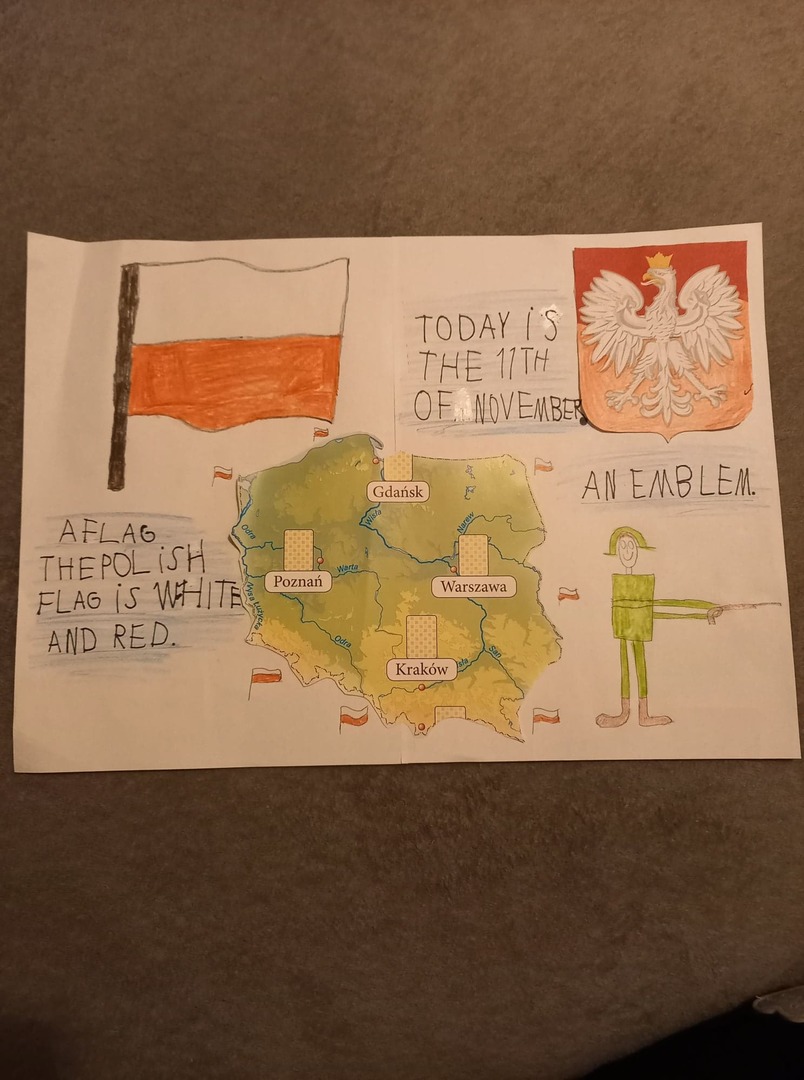 TODAY iS
THE 11TH
OF NOVEMBER.
AN EMBLEM.
A FLAG
THE POLiSH
FLAG iS WHITE
AND RED.
Gdańsk
Poznań
Warszawa
Kraków
Odra
Wisła
Narew
Warta
Nysa Łużycka
Odra
San